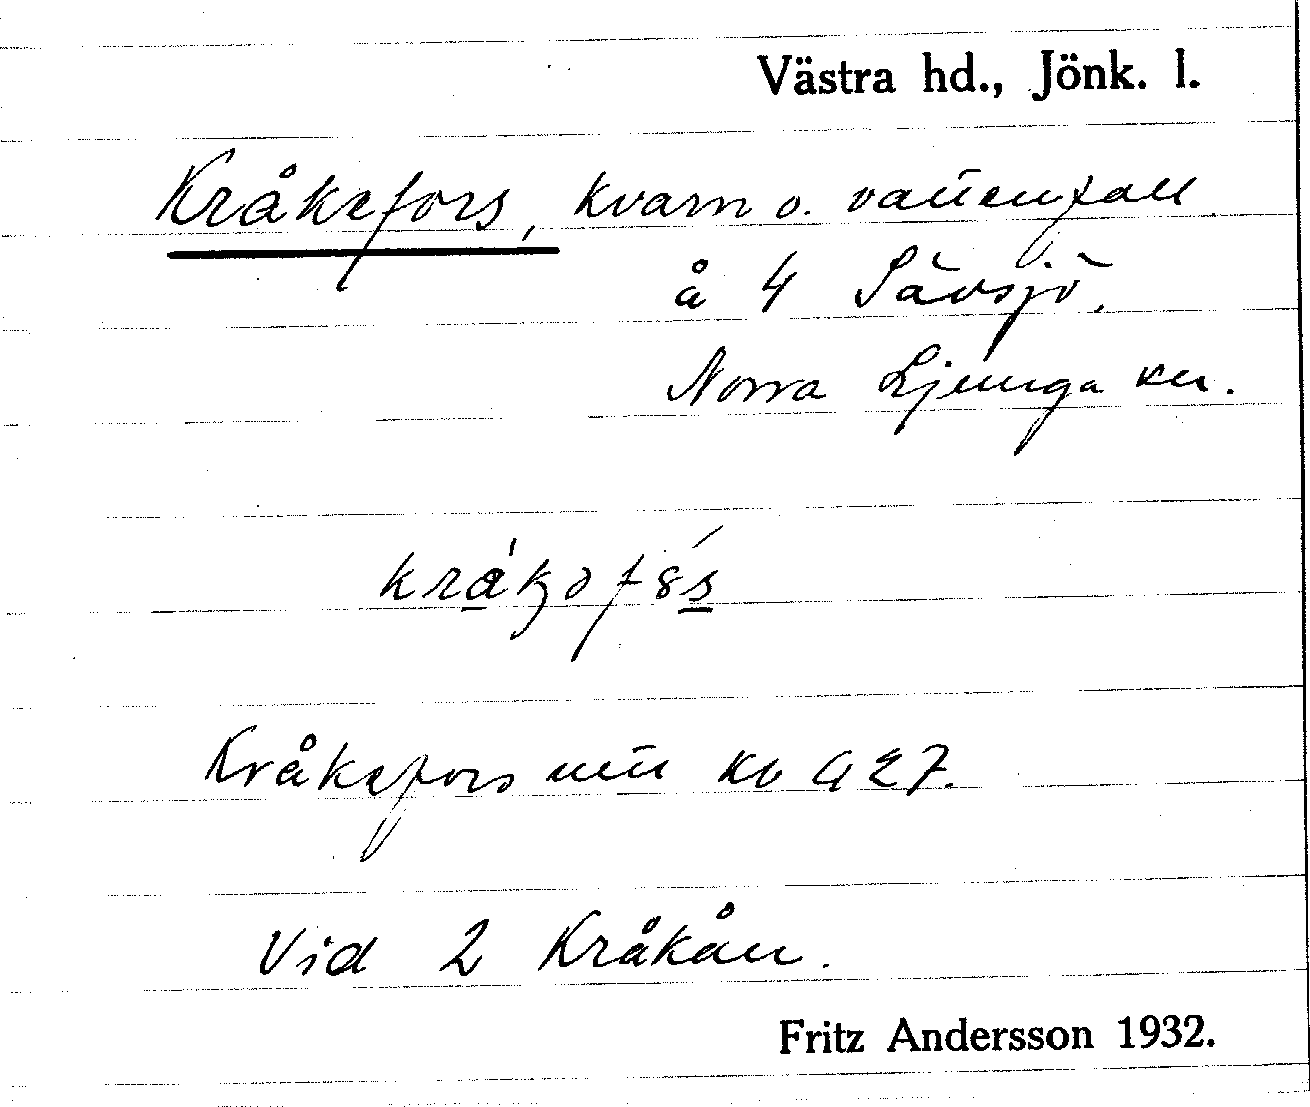 Västra hd., Jönk. l.
Kråkefors, kvarn o. vattenfall
å 4 Sävsjö,
Norra Ljunga sn.
Kråkefors kb
Vid 2 Kråkån.
Fritz Andersson 1932.